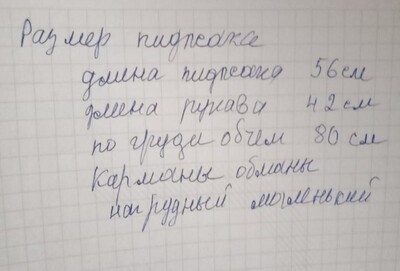 Размер пиджака
длина пиджака 56 см
длина рукава 42 см
по груди обчем 80 см
Карманы обманы
нагрудный маленький